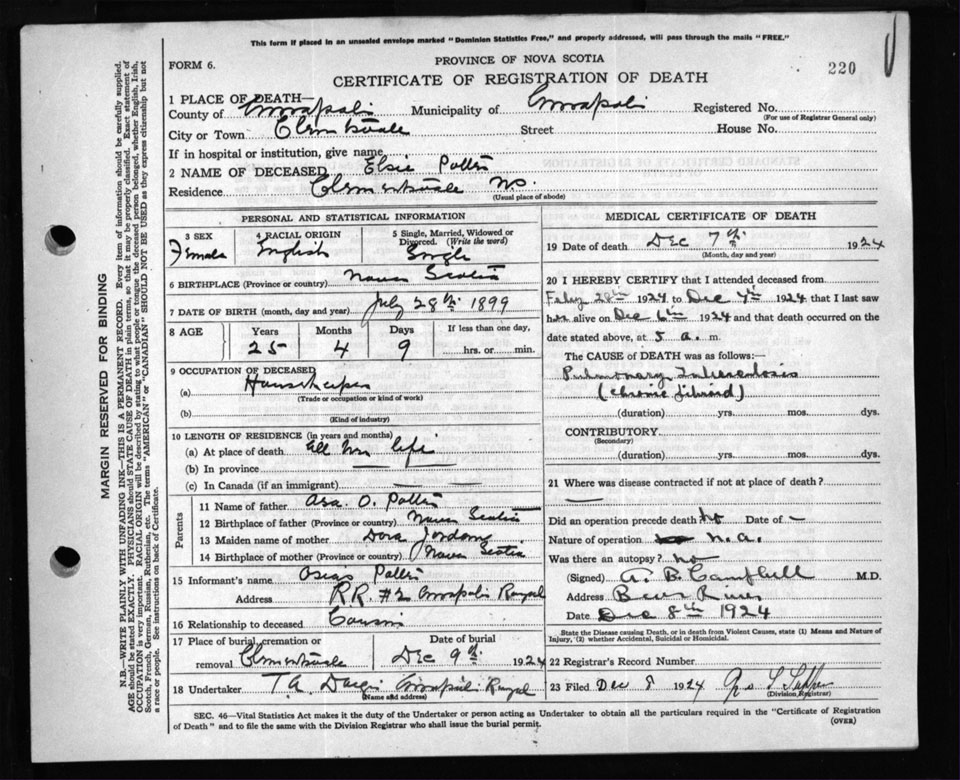 This form if placed in an unsealed envelope marked "Dominion Statistics Free," and properly addressed, will pass through the mails "FREE."
FORM 6.
PROVINCE OF NOVA SCOTIA
220
CERTIFICATE OF REGISTRATION OF DEATH
1 PLACE OF DEATH—
County of Annapolis Municipality of Annapolis Registered No.
(For use of Registrar General only)
City or Town Clementsvale Street House No.
If in hospital or institution, give name
2 NAME OF DECEASED Elsie Potter
Residence Clementsvale N.S.
(Usual place of abode)
PERSONAL AND STATISTICAL INFORMATION
3 SEX
Female
4 RACIAL ORIGIN
English
5 Single, Married, Widowed or
Divorced. (Write the word)
Single
6 BIRTHPLACE (Province or country) Nova Scotia
7 DATE OF BIRTH (month, day and year) July 28th 1899
8 AGE Years Months Days If less than one day,
25 4 9 hrs. or min.
9 OCCUPATION OF DECEASED
(a) Housekeeper
(Trade or occupation or kind of work)
(b)
(Kind of industry)
10 LENGTH OF RESIDENCE (in years and months)
(a) At place of death all her life
(b) In province
(c) In Canada (if an immigrant)
Parents
11 Name of father Asa O. Potter
12 Birthplace of father (Province or country) Nova Scotia
13 Maiden name of mother Dora
14 Birthplace of mother (Province or country) Nova Scotia
15 Informant's name Potter
Address R.R. #2 Annapolis Royal
16 Relationship to deceased Cousin
17 Place of burial, cremation or
removal Clementsvale
Date of burial
Dec 9th 1924
18 Undertaker T.A. Annapolis Royal
(Name and address)
MEDICAL CERTIFICATE OF DEATH
19 Date of death Dec 7th 1924
(Month, day and year)
20 I HEREBY CERTIFY that I attended deceased from
Feby 28th 1924 to Dec 1924 that I last saw
her alive on Dec 6th 1924 and that death occurred on the
date stated above, at 5 a. m.
The CAUSE OF DEATH was as follows:—
Pulmonary Tuberculosis
(chronic fibroid)
(duration) yrs. mos. dys.
CONTRIBUTORY
(Secondary)
(duration) yrs. mos. dys.
21 Where was disease contracted if not at place of death?
—
Did an operation precede death No Date of –
Nature of operation n.a.
Was there an autopsy? No
(Signed) A. B. Campbell M.D.
Address Bear River
Date Dec 8th 1924
State the Disease causing Death, or in death from Violent Causes, state (1) Means and Nature of
Injury, (2) whether Accidental, Suicidal or Homicidal.
22 Registrar's Record Number
23 Filed Dec 8 1924
(Division Registrar)
SEC. 46—Vital Statistics Act makes it the duty of the Undertaker or person acting as Undertaker to obtain all the particulars required in the "Certificate of Registration
of Death" and to file the same with the Division Registrar who shall issue the burial permit.
(OVER)
MARGIN RESERVED FOR BINDING
N.B.—WRITE PLAINLY WITH UNFADING INK—THIS IS A PERMANENT RECORD. Every item of information should be carefully supplied.
AGE should be stated EXACTLY. PHYSICIANS should STATE CAUSE OF DEATH in plain terms, so that it may be properly classified. Exact statement of
OCCUPATION is very important. RACIAL ORIGIN will be described by stating to what people or tongue the deceased person belonged, whether English, Irish,
Scotch, French, German, Russian, Ruthenian, etc. The terms "AMERICAN" or "CANADIAN" SHOULD NOT BE USED as they express citizenship but not
a race or people. See instructions on back of Certificate.